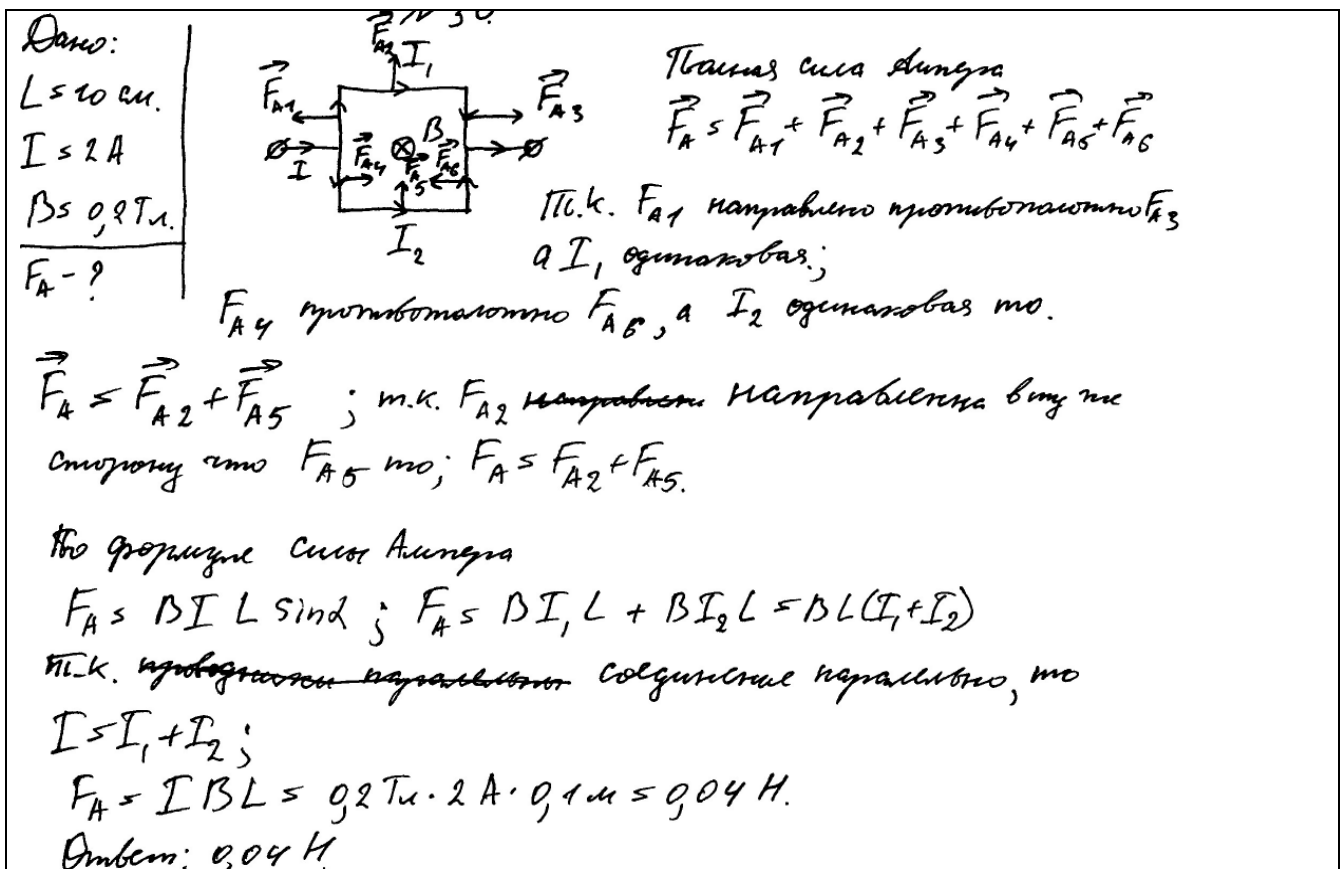 Дано:
L = 10 см.
I = 2 А
B = 0,2 Тл.
F_A - ?
№ 30.
F⃗_A2 I₁
F⃗_A1 F⃗_A3
I F⃗_A4 B F⃗_A5 F⃗_A6
I₂
Полная сила Ампера
F⃗_A = F⃗_A1 + F⃗_A2 + F⃗_A3 + F⃗_A4 + F⃗_A5 + F⃗_A6
Т.к. F_A1 направлено противоположно F_A3
а I₁ одинаковая.;
F_A4 противоположно F_A6, а I₂ одинаковая то.
F⃗_A = F⃗_A2 + F⃗_A5 ; т.к. F_A2 направленна в ту же
сторону что F_A5 то; F_A = F_A2 + F_A5.
По формуле силы Ампера
F_A = B I L sinα ; F_A = B I₁ L + B I₂ L = BL(I₁+I₂)
т.к. проводники паралельны соединение паралельно, то
I = I₁ + I₂;
F_A = I B L = 0,2 Тл · 2 А · 0,1 м = 0,04 Н.
Ответ: 0,04 Н